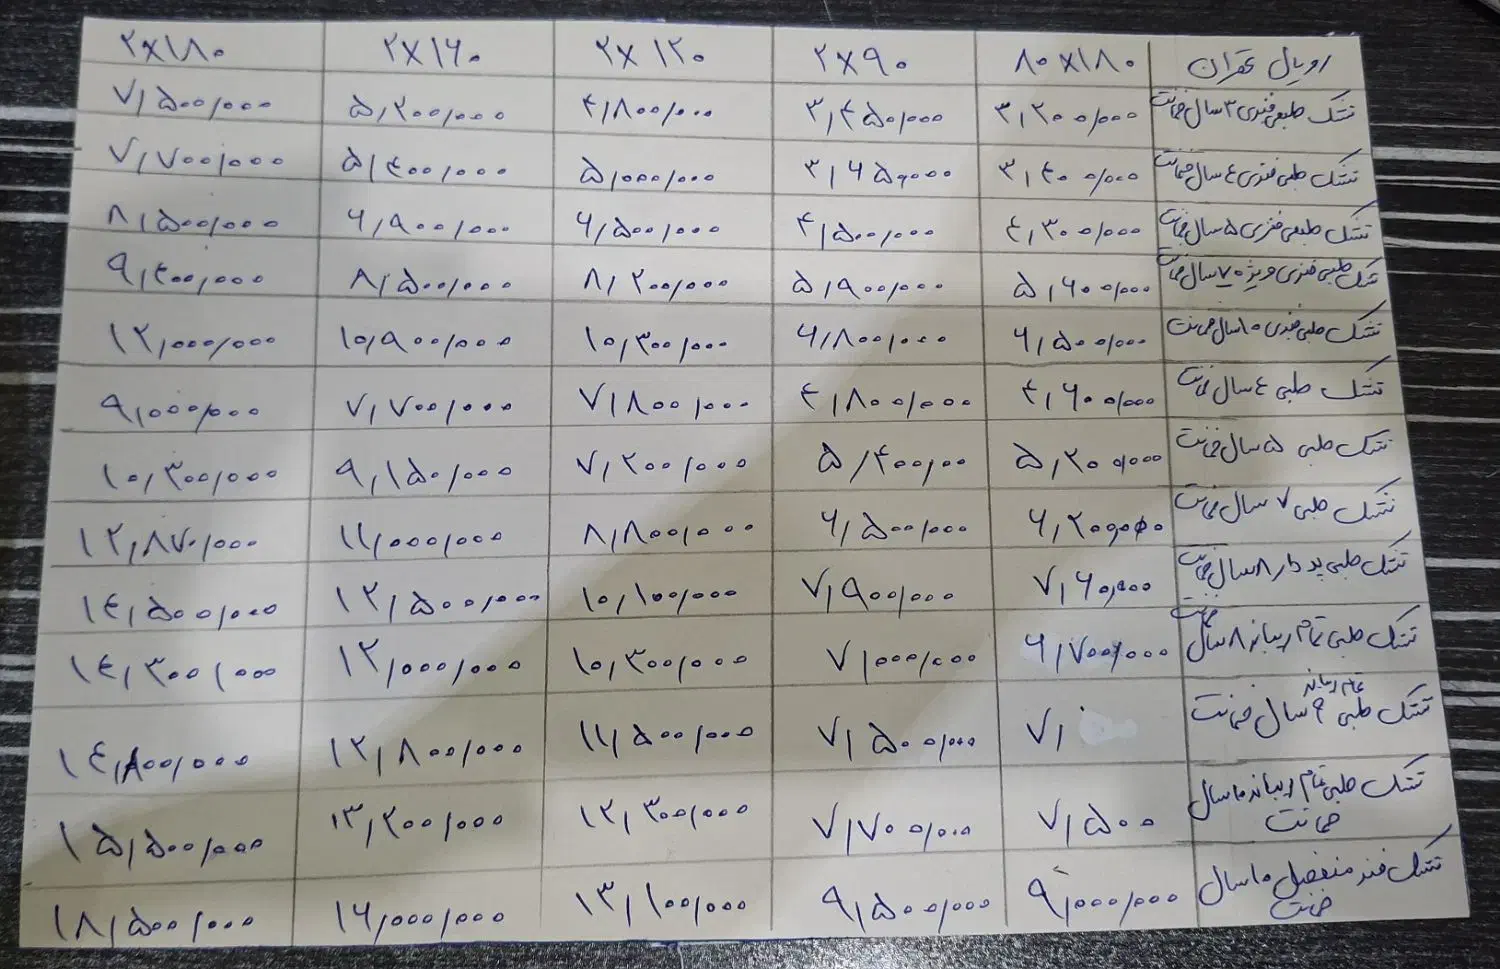 رویال تهران ۸۰×۱۸۰ ۲×۹۰ ۲×۱۲۰ ۲×۱۶۰ ۲×۱۸۰
تشک طبی فنری ۳ سال ضمانت ۳,۲۰۰,۰۰۰ ۳,۴۵۰,۰۰۰ ۴,۸۰۰,۰۰۰ ۵,۲۰۰,۰۰۰ ۷,۵۰۰,۰۰۰
تشک طبی فنری ۴ سال ضمانت ۳,۴۰۰,۰۰۰ ۳,۶۵۰,۰۰۰ ۵,۰۰۰,۰۰۰ ۵,۴۰۰,۰۰۰ ۷,۷۰۰,۰۰۰
تشک طبی فنری ۵ سال ضمانت ۴,۳۰۰,۰۰۰ ۴,۵۰۰,۰۰۰ ۶,۵۰۰,۰۰۰ ۶,۹۰۰,۰۰۰ ۸,۵۰۰,۰۰۰
تشک طبی فنری ویژه ۷ سال ضمانت ۵,۶۰۰,۰۰۰ ۵,۹۰۰,۰۰۰ ۸,۲۰۰,۰۰۰ ۸,۵۰۰,۰۰۰ ۹,۴۰۰,۰۰۰
تشک طبی فنری ۱۰ سال ضمانت ۶,۵۰۰,۰۰۰ ۶,۸۰۰,۰۰۰ ۱۰,۳۰۰,۰۰۰ ۱۰,۹۰۰,۰۰۰ ۱۲,۰۰۰,۰۰۰
تشک طبی ۴ سال ضمانت ۴,۶۰۰,۰۰۰ ۴,۸۰۰,۰۰۰ ۷,۸۰۰,۰۰۰ ۷,۷۰۰,۰۰۰ ۹,۰۰۰,۰۰۰
تشک طبی ۵ سال ضمانت ۵,۲۰۰,۰۰۰ ۵,۴۰۰,۰۰ ۷,۲۰۰,۰۰۰ ۹,۱۵۰,۰۰۰ ۱۰,۳۰۰,۰۰۰
تشک طبی ۷ سال ضمانت ۶,۲۰۰,۰۰۰ ۶,۵۰۰,۰۰۰ ۸,۸۰۰,۰۰۰ ۱۱,۰۰۰,۰۰۰ ۱۲,۸۷۰,۰۰۰
تشک طبی پد دار ۸ سال ضمانت ۷,۶۰,۰۰۰ ۷,۹۰۰,۰۰۰ ۱۰,۱۰۰,۰۰۰ ۱۲,۵۰۰,۰۰۰ ۱۴,۵۰۰,۰۰۰
تشک طبی تمام ریباند ۸ سال ضمانت ۶,۷۰۰,۰۰۰ ۷,۰۰۰,۰۰۰ ۱۰,۳۰۰,۰۰۰ ۱۲,۰۰۰,۰۰۰ ۱۴,۳۰۰,۰۰۰
تمام ریباند
تشک طبی ۹ سال ضمانت ۷, ۷,۵۰۰,۰۰۰ ۱۱,۵۰۰,۰۰۰ ۱۲,۸۰۰,۰۰۰ ۱۴,۸۰۰,۰۰۰
تشک طبی تمام ریباند ۱۰ سال ۷,۵۰۰ ۷,۷۰۰,۰۰۰ ۱۲,۳۰۰,۰۰۰ ۱۳,۲۰۰,۰۰۰ ۱۵,۵۰۰,۰۰۰
ضمانت
تشک فنر منفصل ۱۰ سال ۹,۰۰۰,۰۰۰ ۹,۵۰۰,۰۰۰ ۱۳,۱۰۰,۰۰۰ ۱۶,۰۰۰,۰۰۰ ۱۸,۵۰۰,۰۰۰
ضمانت